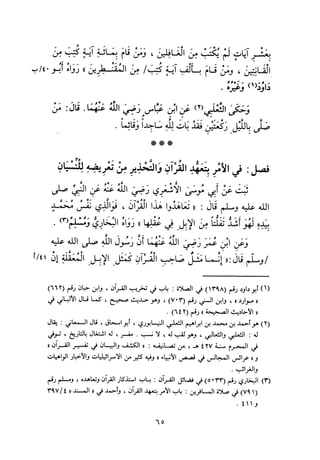 بِعَشْرِ آيَاتٍ لَمْ يُكْتَبْ مِنَ الْغَافِلِينَ ، وَمَنْ قَامَ بِمِائَةِ آيَةٍ كُتِبَ مِنَ
الْقَانِتِينَ ، وَمَنْ قَامَ بِأَلْفِ آيَةٍ كُتِبَ/ مِنَ الْمُقَنْطِرِينَ » رَوَاهُ أَبُو ٤٠/ب
دَاوُدَ(١) وَغَيْرُهُ .
وَحَكَى الثَّعْلَبِي(٢) عَنِ ابْنِ عَبَّاسٍ رَضِيَ اللَّهُ عَنْهُمَا. قَالَ: مَنْ
صَلَّى بِاللَّيْلِ رَكْعَتَيْنِ فَقَدْ بَاتَ لِلَّهِ سَاجِداً وَقَائِماً .
***
فصل : في الأَمْرِ بِتَعَهُّدِ القُرْآنِ وَالتَّحْذِيرِ مِنْ تَعْرِيضِهِ لِلنِّسْيَانِ
ثَبَتَ عَنْ أَبِي مُوسَى الأَشْعَرِي رَضِيَ اللَّهُ عَنْهُ عَنِ النَّبِيِّ صلى
الله عليه وسلم قَالَ : « تَعَاهَدُوا هَذَا الْقُرْآنَ ، فَوَالَّذِي نَفْسُ مُحَمَّدٍ
بِيَدِهِ لَهُوَ أَشَدُّ تَفَلُّتاً مِنَ الإِبِلِ فِي عُقُلِهَا » رَوَاهُ الْبُخَارِيُّ وَمُسْلِمٌ(٣) .
وَعَنِ ابْنِ عُمَرَ رَضِيَ اللَّهُ عَنْهُمَا أَنَّ رَسُولَ اللَّهِ صلى الله عليه
/وسلم قَالَ: « إِنَّمَا مَثَلُ صَاحِبِ الْقُرْآنِ كَمَثَلِ الإِبِلِ الْمُعَقَّلَةِ إِنْ ٤١/أ
(١) أبو داود رقم (١٣٩٨) في الصلاة : باب في تحزيب القرآن ، وابن حبان رقم (٦٦٢)
« موارد » ، وابن السني رقم (٧٠٣) ، وهو حديث صحيح ، كما قال الألباني في
« الأحاديث الصحيحة » رقم (٦٤٢) .
(٢) هو أحمد بن محمد بن ابراهيم الثعلبي النيسابوري ، أبو اسحاق ، قال السمعاني : يقال
له : الثعلبي والثعالبي ، وهو لقب له ، لا نسب . مفسر ، له اشتغال بالتاريخ ، توفي
في المحرم سنة ٤٢٧ هـ ، من تصانيفه : « الكشف والبيان في تفسير القرآن »
و « عرائس المجالس في قصص الأنبياء » وفيه كثير من الاسرائيليات والأخبار الواهيات
والغرائب .
(٣) البخاري رقم (٥٠٣٣) في فضائل القرآن : باب استذكار القرآن وتعاهده ، ومسلم رقم
(٧٩١) في صلاة المسافرين : باب الأمر بتعهد القرآن ، وأحمد في « المسند » ٣٩٧/٤
و ٤١١ .
٦٥